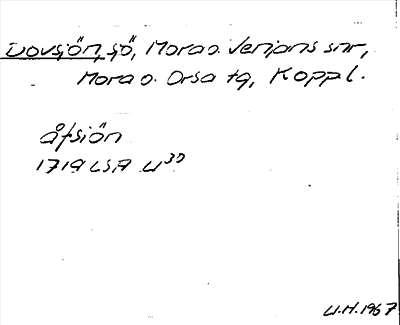 Dovsjön, sjö, Mora o. Venjans snr,
Mora o. Orsa tg, Koppl.
åfsiön
1719 LSA U³⁰
U.H. 1967